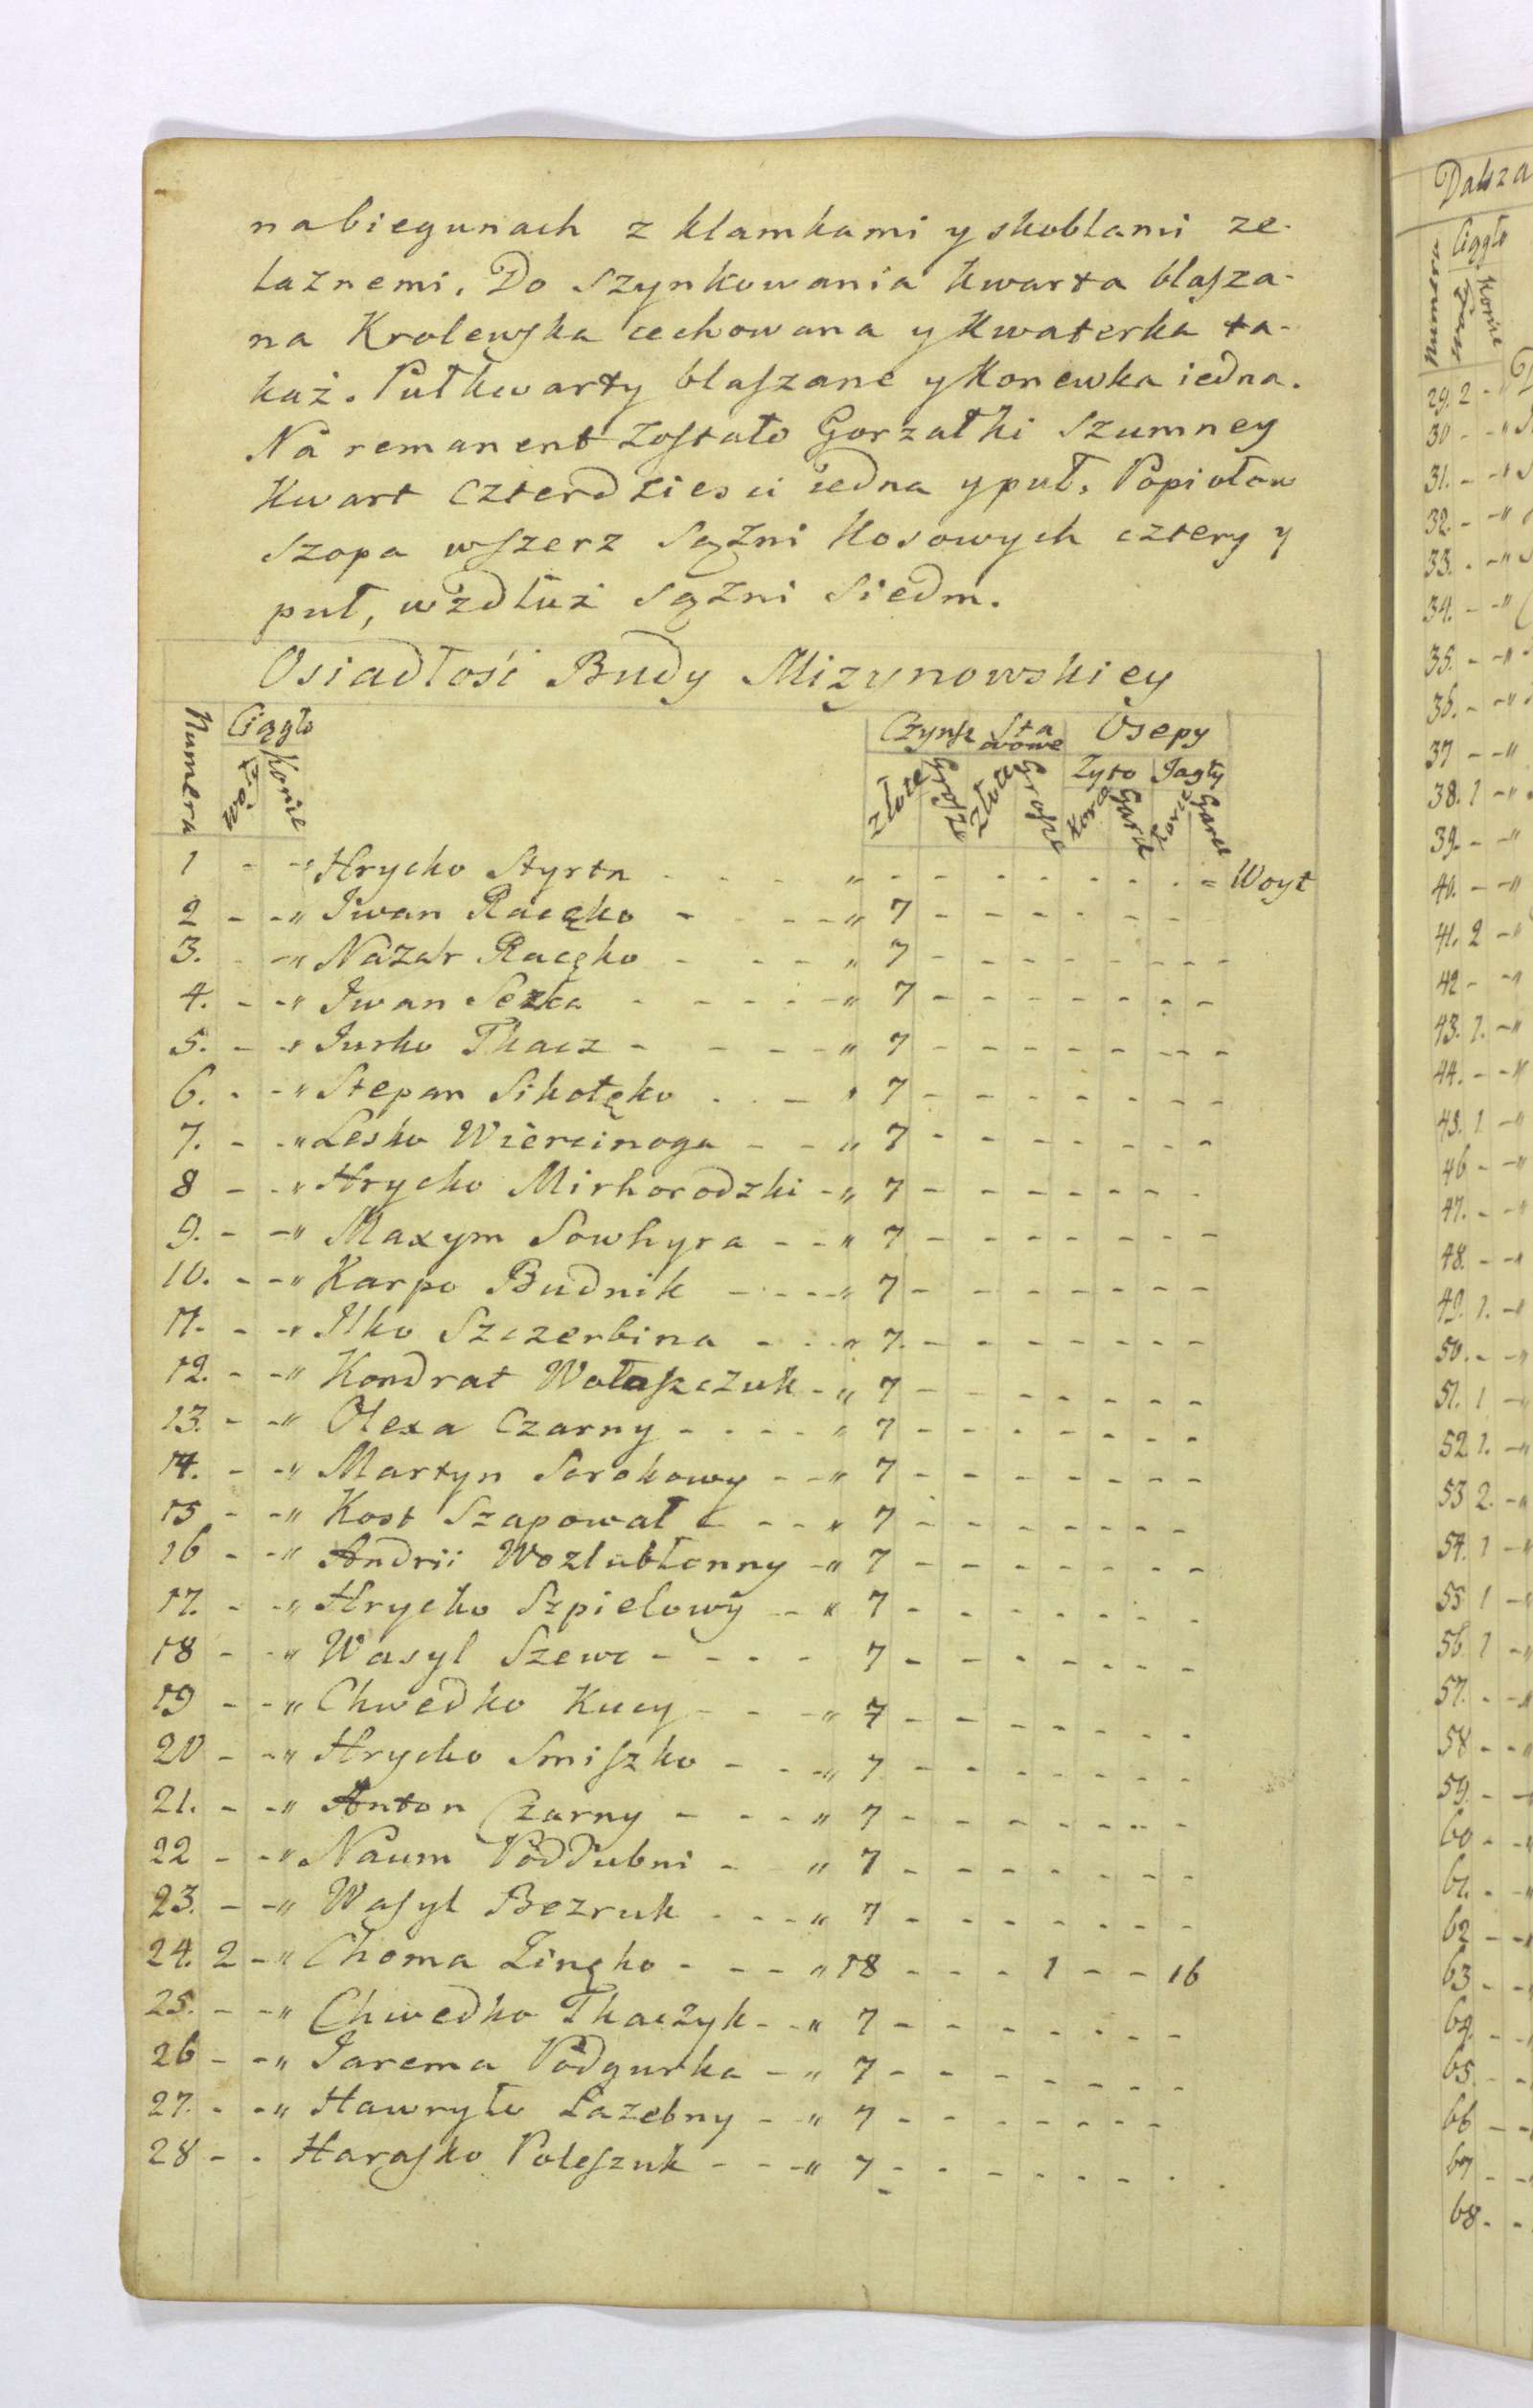 na biegunach z klamkami y skoblami ze-
laznemi. Do szynkowania kwarta blasza-
na Krolewska cechowana y kwaterka ta-
każ. Pułkwarty blaszane y Konewka iedna.
Na remanent zostało Gorzałki szumney
Kwart czterdziesci iedna y puł. Popiołow
szopa wszerz sążni kosowych cztery y
puł, wzdłuż sążni siedm.
Osiadłość Budy Mizynowskiey
Numera Ciągło Czynsz Sta
wowe Osepy
Konie Złote Grosze Złote Grosze Zyto Jagły
Korce Garce Korce Garce
1 - - " Hrycko Styrta - - - " - - - - - - - - Woyt
2 - - " Iwan Racęko - - - " 7 - - - - - -
3. - - " Nazar Racęko - - - " 7 - - - - - - -
4. - - " Iwan - - - " 7 - - - - - - -
5. - - " Jurko Tkacz - - - " 7 - - - - - - -
6. - - " Stepan Sikołęko - - - " 7 - - - - - - -
7. - - " Lesko Wiercinoga - - " 7 - - - - - - -
8 - - " Hrycko Mirhorodzki - " 7 - - - - - - -
9. - - " Maxym Sowhyra - - " 7 - - - - - - -
10. - - " Karpo Budnik - - - " 7 - - - - - - -
11. - - " Ilko Szczerbina - - - " 7. - - - - - - -
12. - - " Kondrat Wołaszczuk - " 7 - - - - - - -
13. - - " Olexa Czarny - - - - " 7 - - - - - - -
14. - - " Martyn Sorokowy - - " 7 - - - - - - -
15 - - " Kost Szapował - - - " 7 - - - - - - -
16 - - " Andrii - " 7 - - - - - - -
17. - - " Hrycko Szpielowy - - " 7 - - - - - - -
18 - - " Wasyl Szewc - - - - 7 - - - - - - -
19 - - " Chwedko Kucy - - - " 7 - - - - - - -
20 - - " Hrycko Smiszko - - - " 7 - - - - - - -
21. - - " Anton Czarny - - - " 7 - - - - - - -
22 - - " Naum Poddubni - " 7 - - - - - - -
23. - - " Wasyl Bezruk - - - " 7 - - - - - - -
24. 2 - " Choma Zinęko - - - " 18 - - - 1 - - 16
25. - - " Chwedko Tkaczyk - - " 7 - - - - - - -
26 - - " Jarema Podgurka - " 7 - - - - - - -
27. - - " Hawryło Łazebny - - " 7 - - - - - - -
28 - - Harasko Poleszuk - - - " 7 - - - - - - -
Dalsza
Numera Ciągło
Konie
29. 2 -
30 - -
31. - -
32. - -
33. - -
34. - -
35. - -
36. - -
37 - -
38. 1 -
39. - -
40. - -
41. 2 -
42 - -
43. 1. -
44. - -
45. 1 -
46 - -
47. - -
48. - -
49. 1. -
50. - -
51. 1 -
52 1. -
53 2. -
54. 1 -
55 1 -
56. 1 -
57. - -
58 - -
59. - -
60 - -
61. - -
62 - -
63. - -
64. - -
65. - -
66 - -
67. - -
68. - -